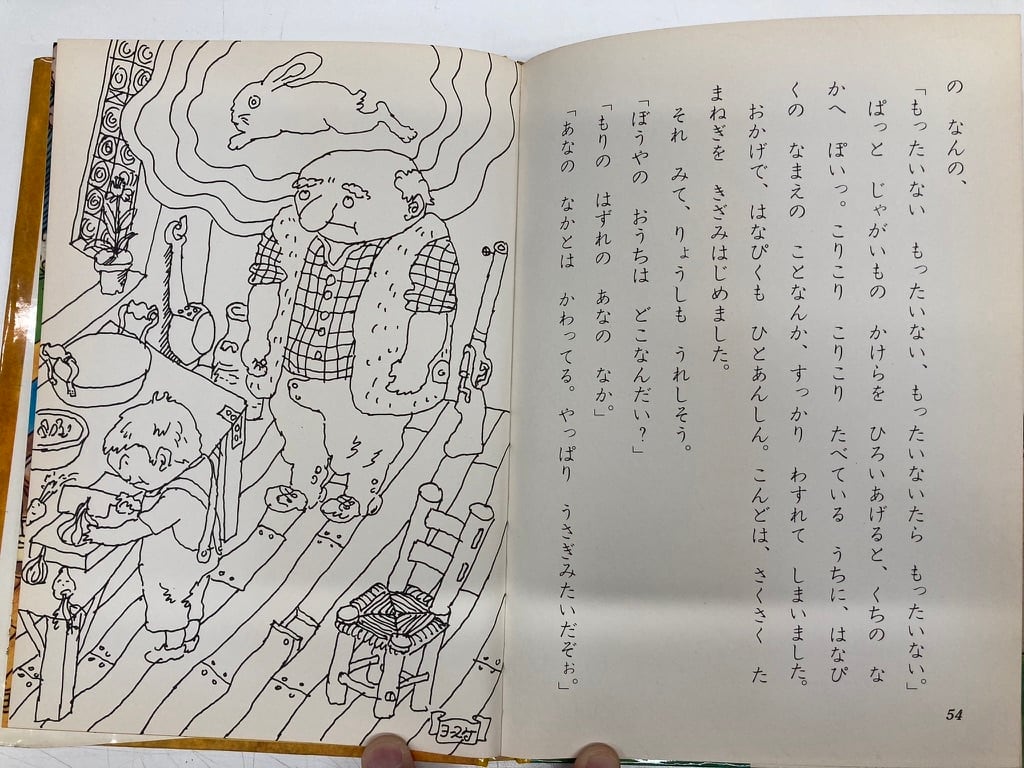 の　なんの、
「もったいない　もったいない、もったいないたら　もったいない。」
ぱっと　じゃがいもの　かけらを　ひろいあげると、くちの　な
かへ　ぽいっ。こりこり　こりこり　たべている　うちに、はなぴ
くの　なまえの　ことなんか、すっかり　わすれて　しまいました。
おかげで、はなぴくも　ひとあんしん。こんどは、さくさく　た
まねぎを　きざみはじめました。
それ　みて、りょうしも　うれしそう。
「ぼうやの　おうちは　どこなんだい？」
「もりの　はずれの　あなの　なか。」
「あなの　なかとは　かわってる。やっぱり　うさぎみたいだぞぉ。」
54